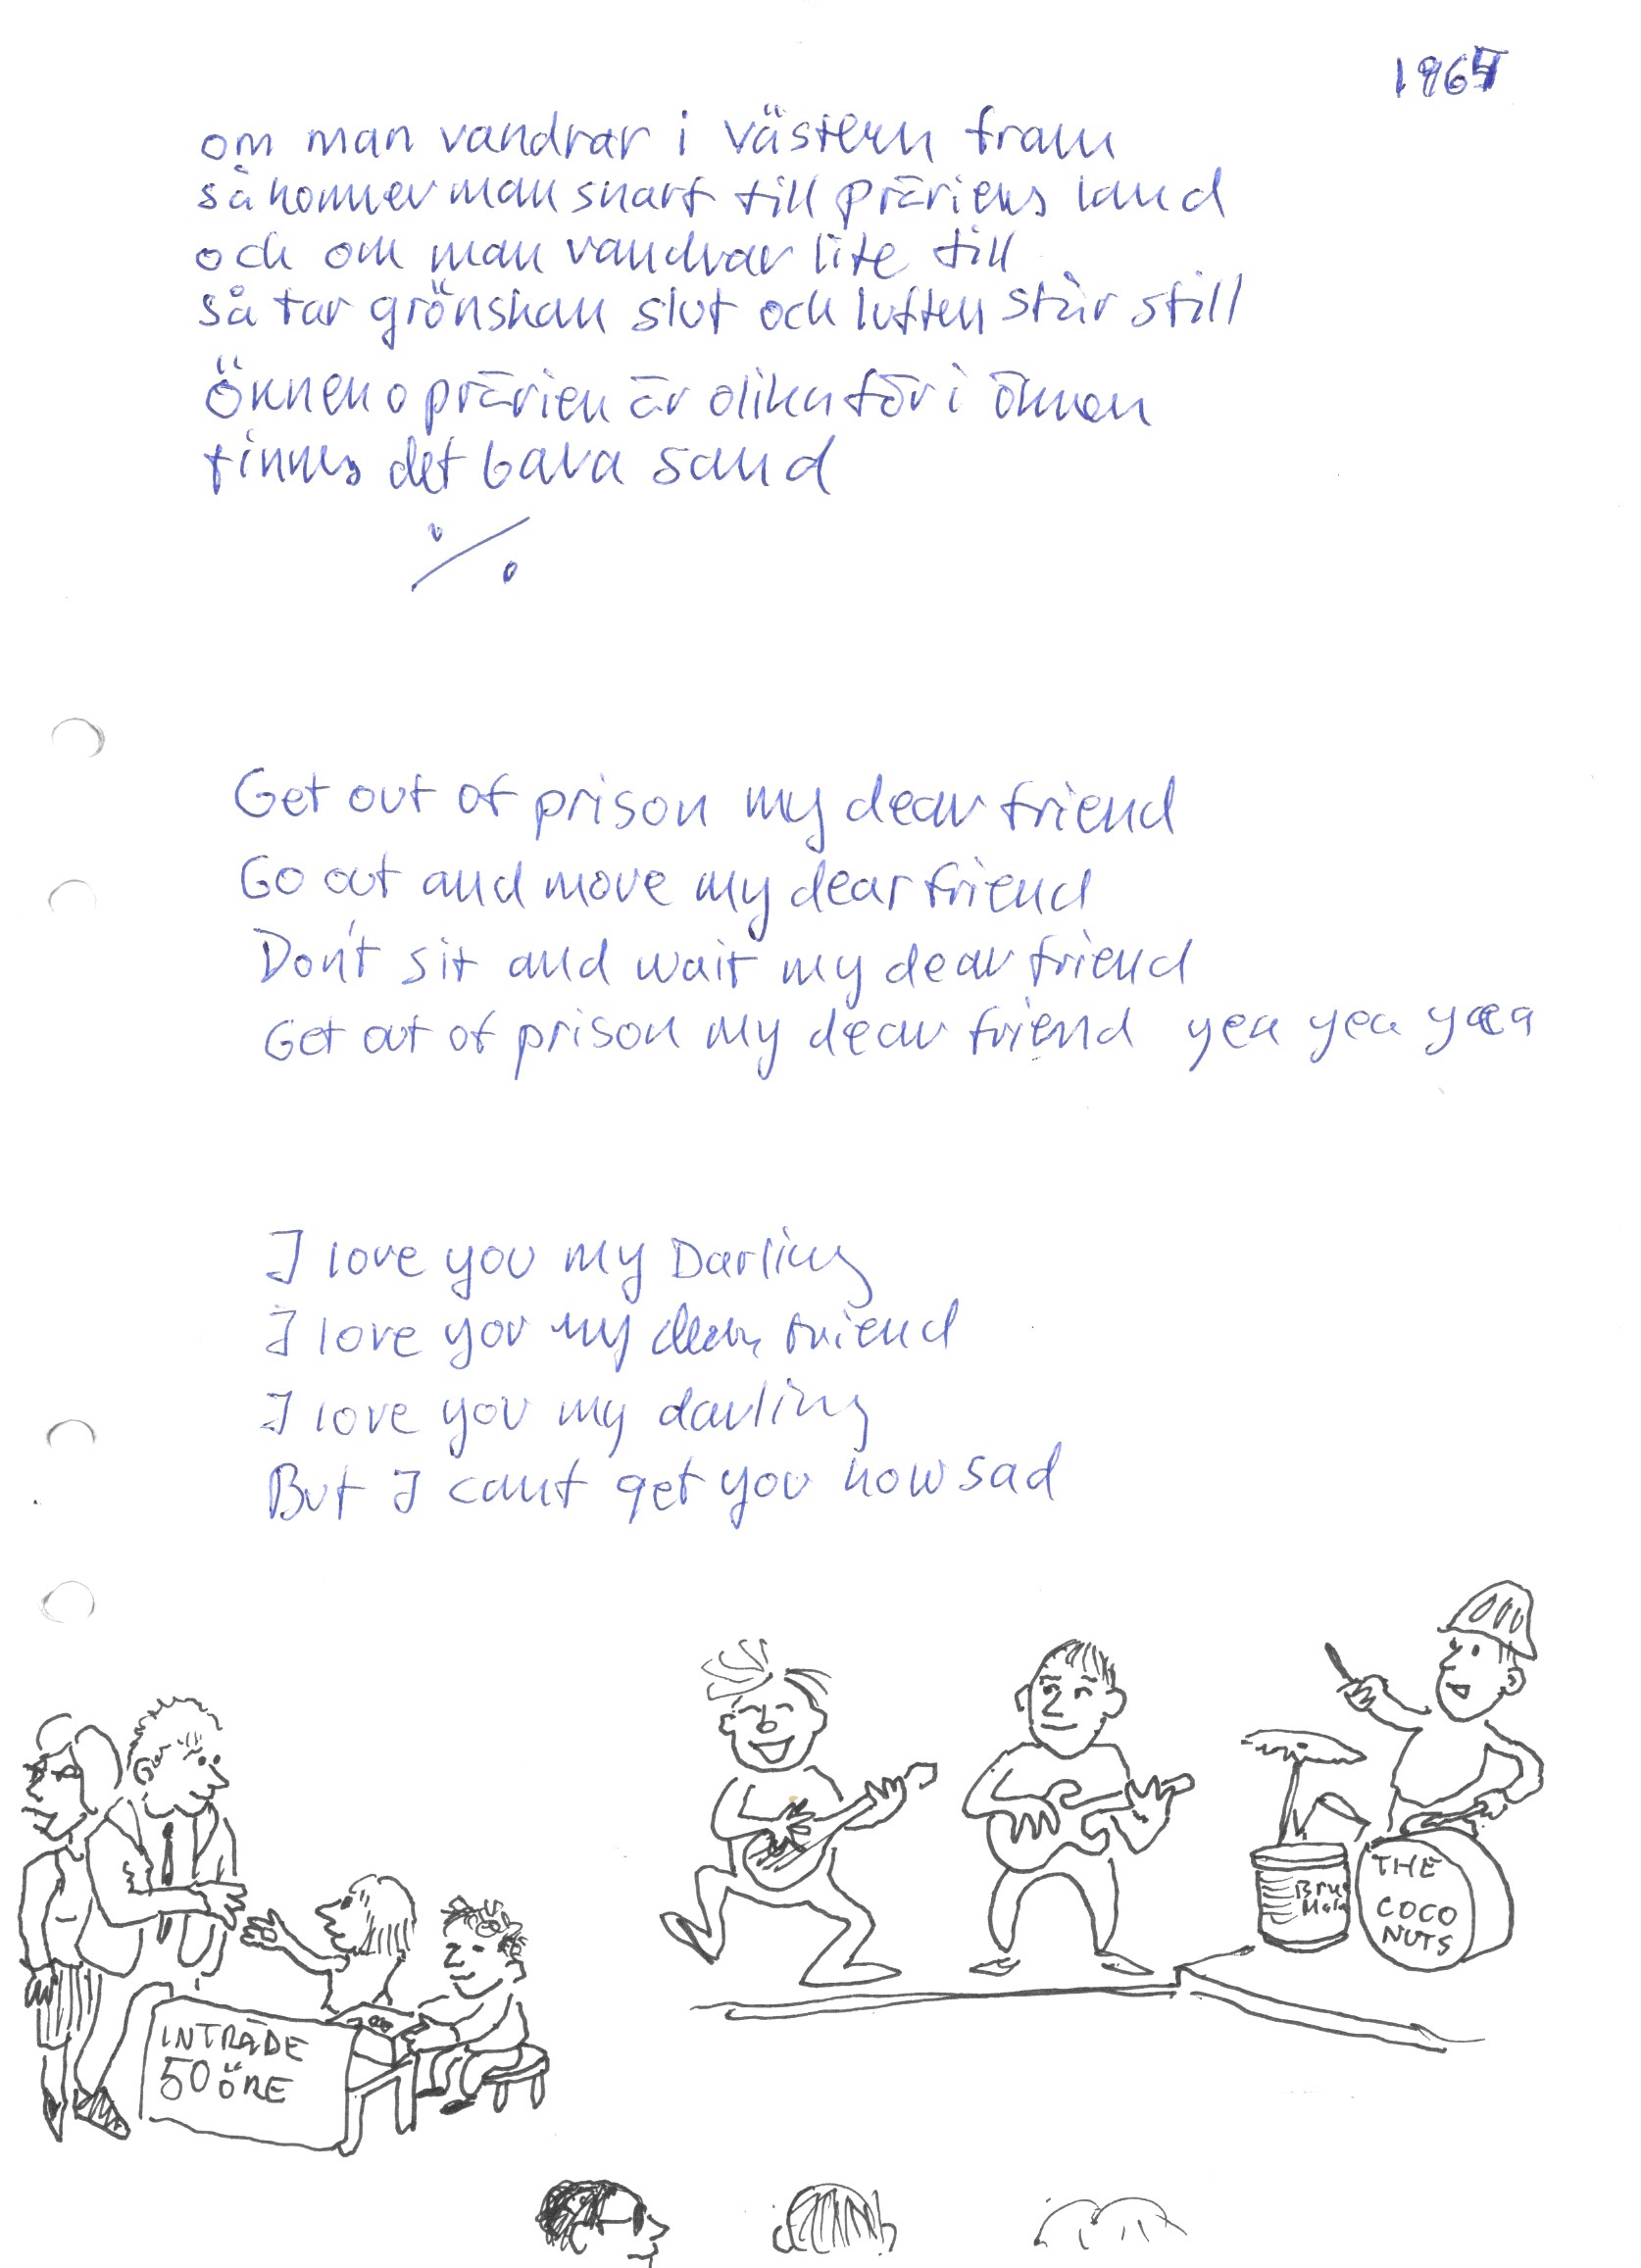 1964
om man vandrar i västern fram
så kommer man snart till präriens land
och om man vandrar lite till
så tar grönskan slut och luften står still
Öknen o prärien är olika för i öknen
finnes det bara sand
Get out of prison my dear friend
Go out and move my dear friend
Don't sit and wait my dear friend
Get out of prison my dear friend yea yea yea
I love you my Darling
I love you my dear friend
I love you my darling
But I cant get you how sad
THE
COCO
NUTS
Bru
INTRÄDE
50 ÖRE